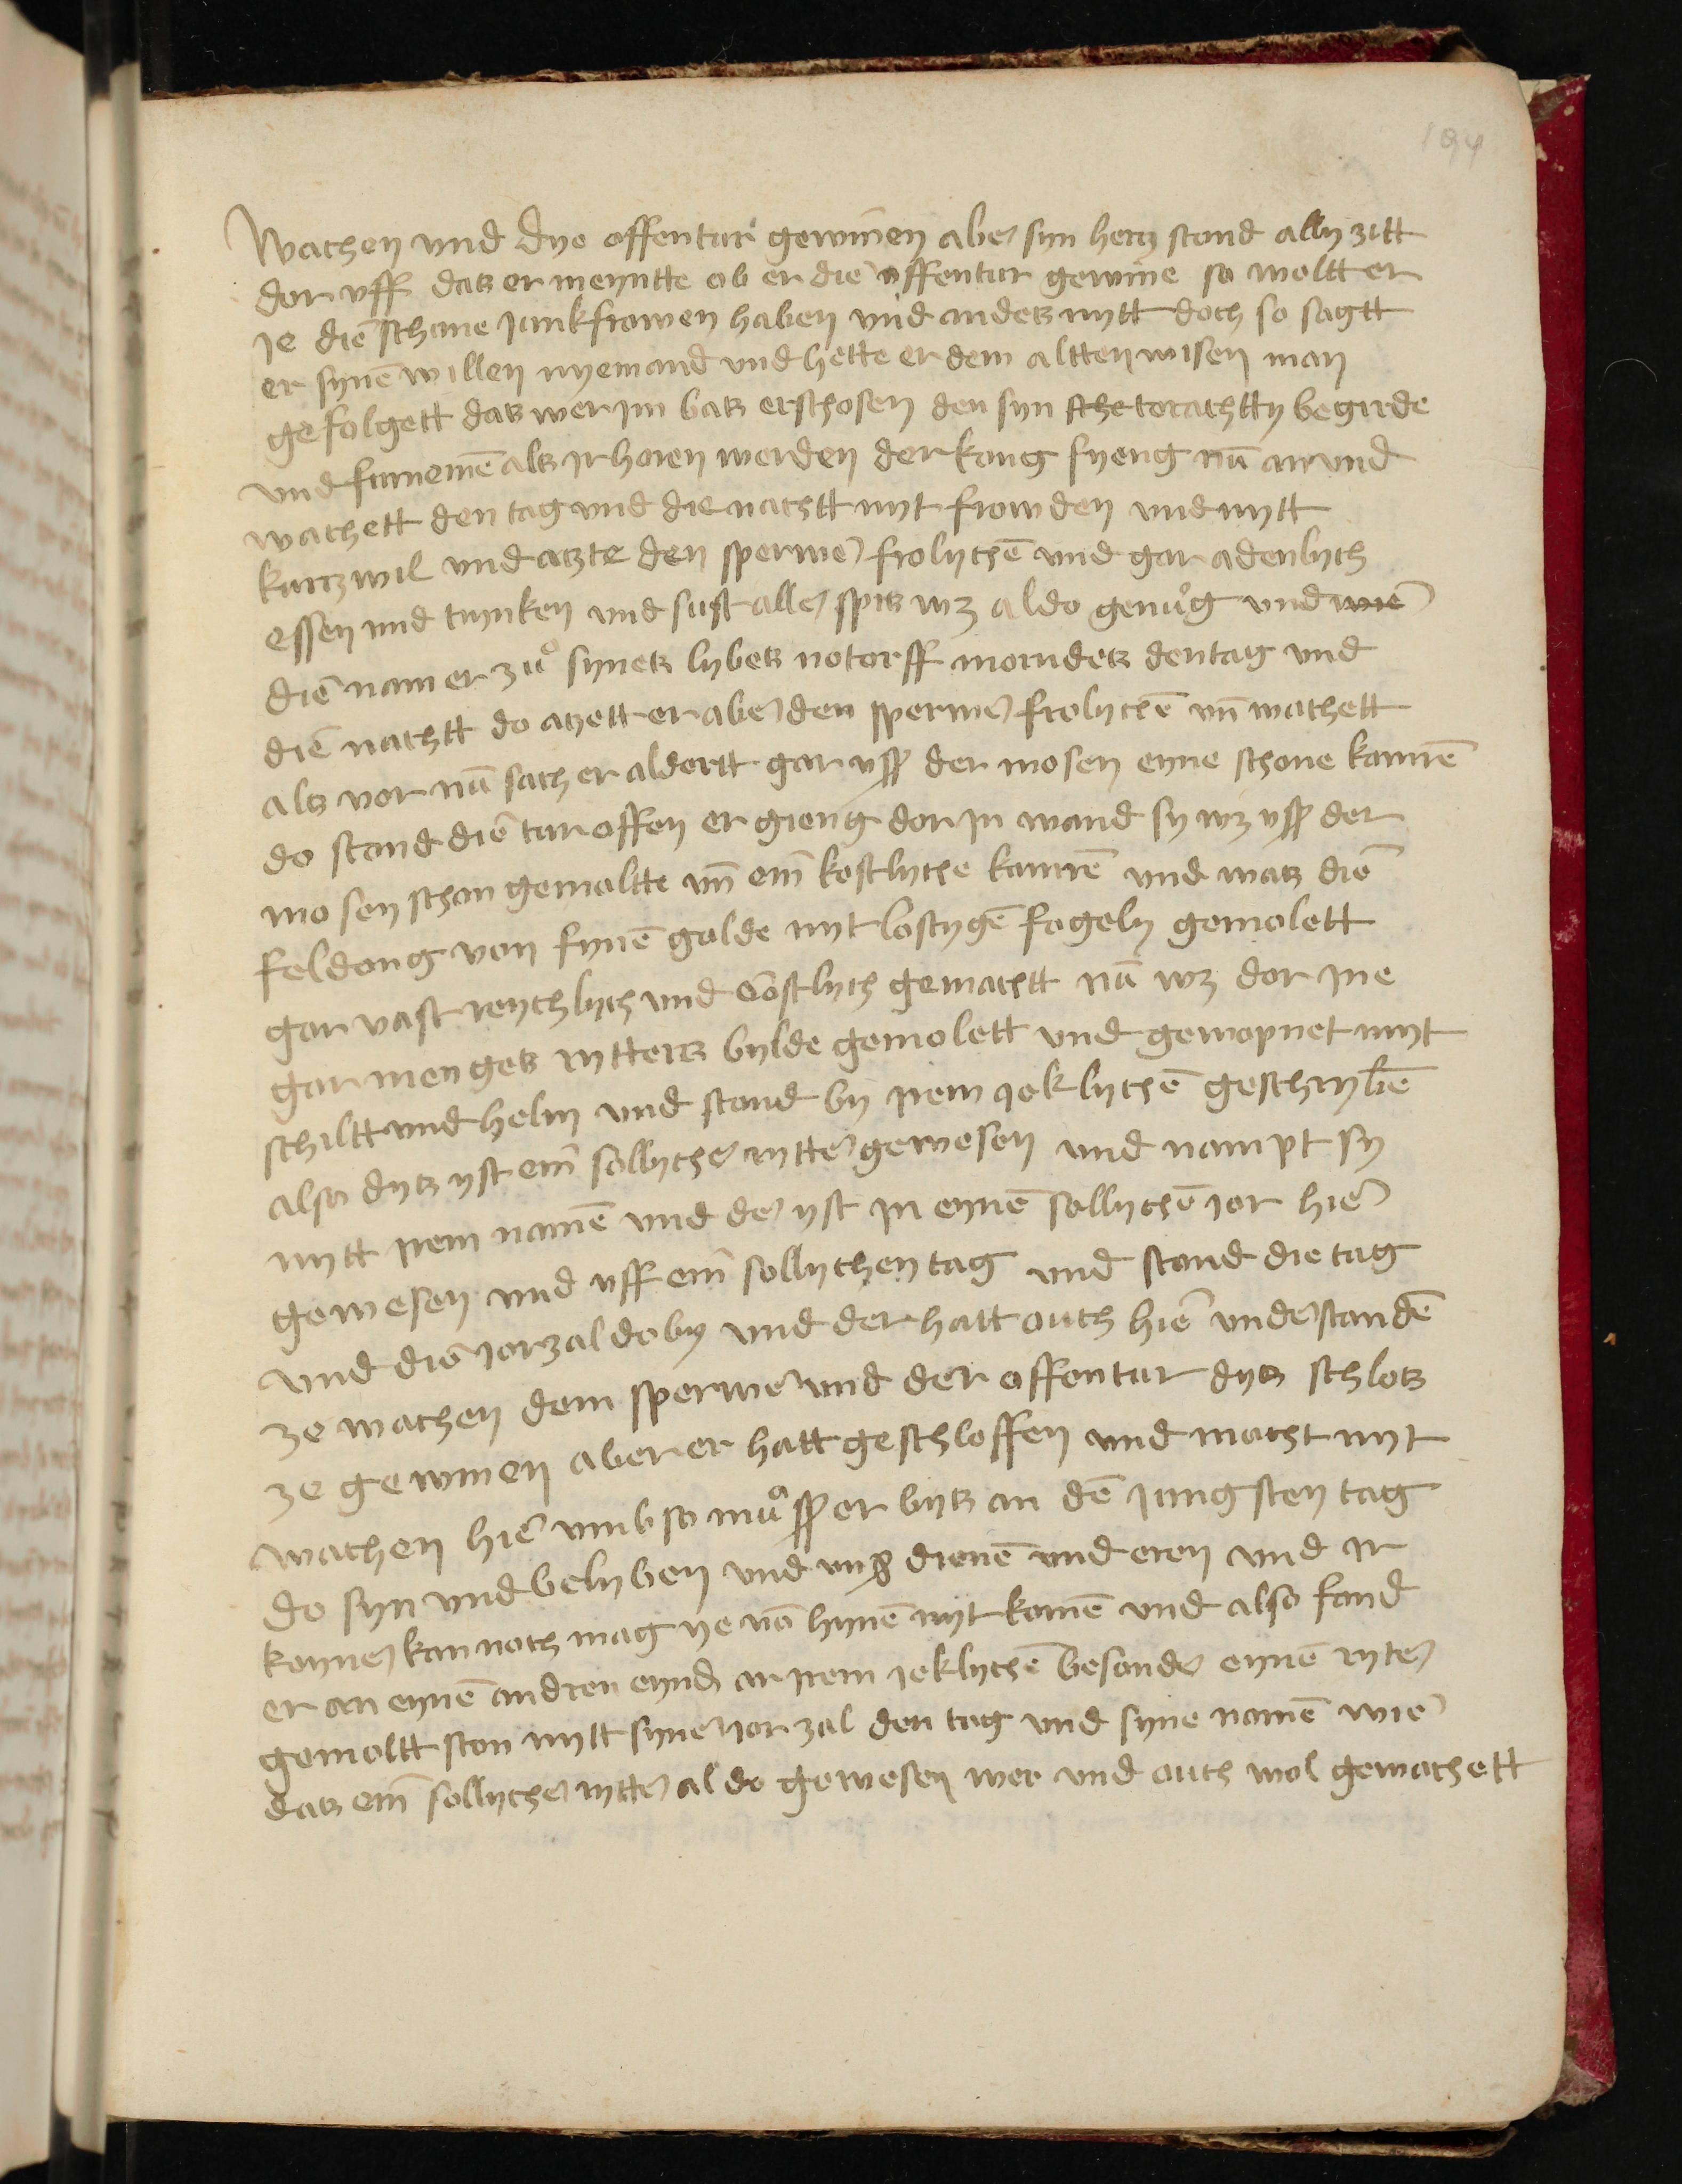 194
Wachen vnd dye offentur gewinen aber syn hertz stond ally zitt
dor vff das er meyntte ob er die offentur gewine so woltt er
je die schone junkfrowen haben vnd anders nytt doch so sagtt
er synē willen nyemand vnd hette er dem altten wisen man
gefolgett das wer jm bas erschosen den syn begirde
vnd furnemē als jr horen werden der kong fyeng nū an vnd
wachett den tag vnd die nachtt myt frowden vnd mytt
kurtzwil vnd atzte den sperwer frolychē vnd gar adenlych
essen vnd trynken vnd sust alle spis wz aldo genůg vnd wie
die nam er zů synes lybes notorff morndes den tag vnd
die nachtt do atzett er aber den sperwer frolychē vn̄ wachett
als vor nū sach er aldortt gar vsß der mosen eyne schone kamrē
do stond die tur offen er gieng dor jn wand sy wz vsß der
mosen schon gemoltte vn̄ ein̄ kostlyche kamrē vnd was die
feldong von fynē golde myt lostygē fogeln gemolett
gar vast reychlych vnd costlych gemachtt nū wz dor jne
gar menges rytters bylde gemolett vnd gewopnet myt
schiltt vnd helm vnd stond by jrem jeklychē geschrybē
also dys yst ein̄ sollycher rytter gewesen vnd nampt sy
mytt jrem namē vnd der yst jn eynē sollychē jor hie
gewesen vnd vff ein̄ sollychen tag vnd stond die tag
vnd die jorzal doby vnd der hatt ouch hie vnderstandē
ze wachen dem sperwer vnd der offentur dys schlos
ze gewinen aber er hatt geschloffen vnd macht nyt
wachen hie vmb so můsß er bys an dē jungsten tag
do syn vnd belyben vnd vnß dienē vnd eren vnd jr
keyner kan noch mag ye vō hynē nyt komē vnd also fand
er an eynē andren eynd an jrem jeklychē besonder eynē ryter
gemoltt ston mytt syner jor zal den tag vnd syne namē wie
das ein̄ sollycher rytter al do gewesen wer vnd ouch wol gewachett